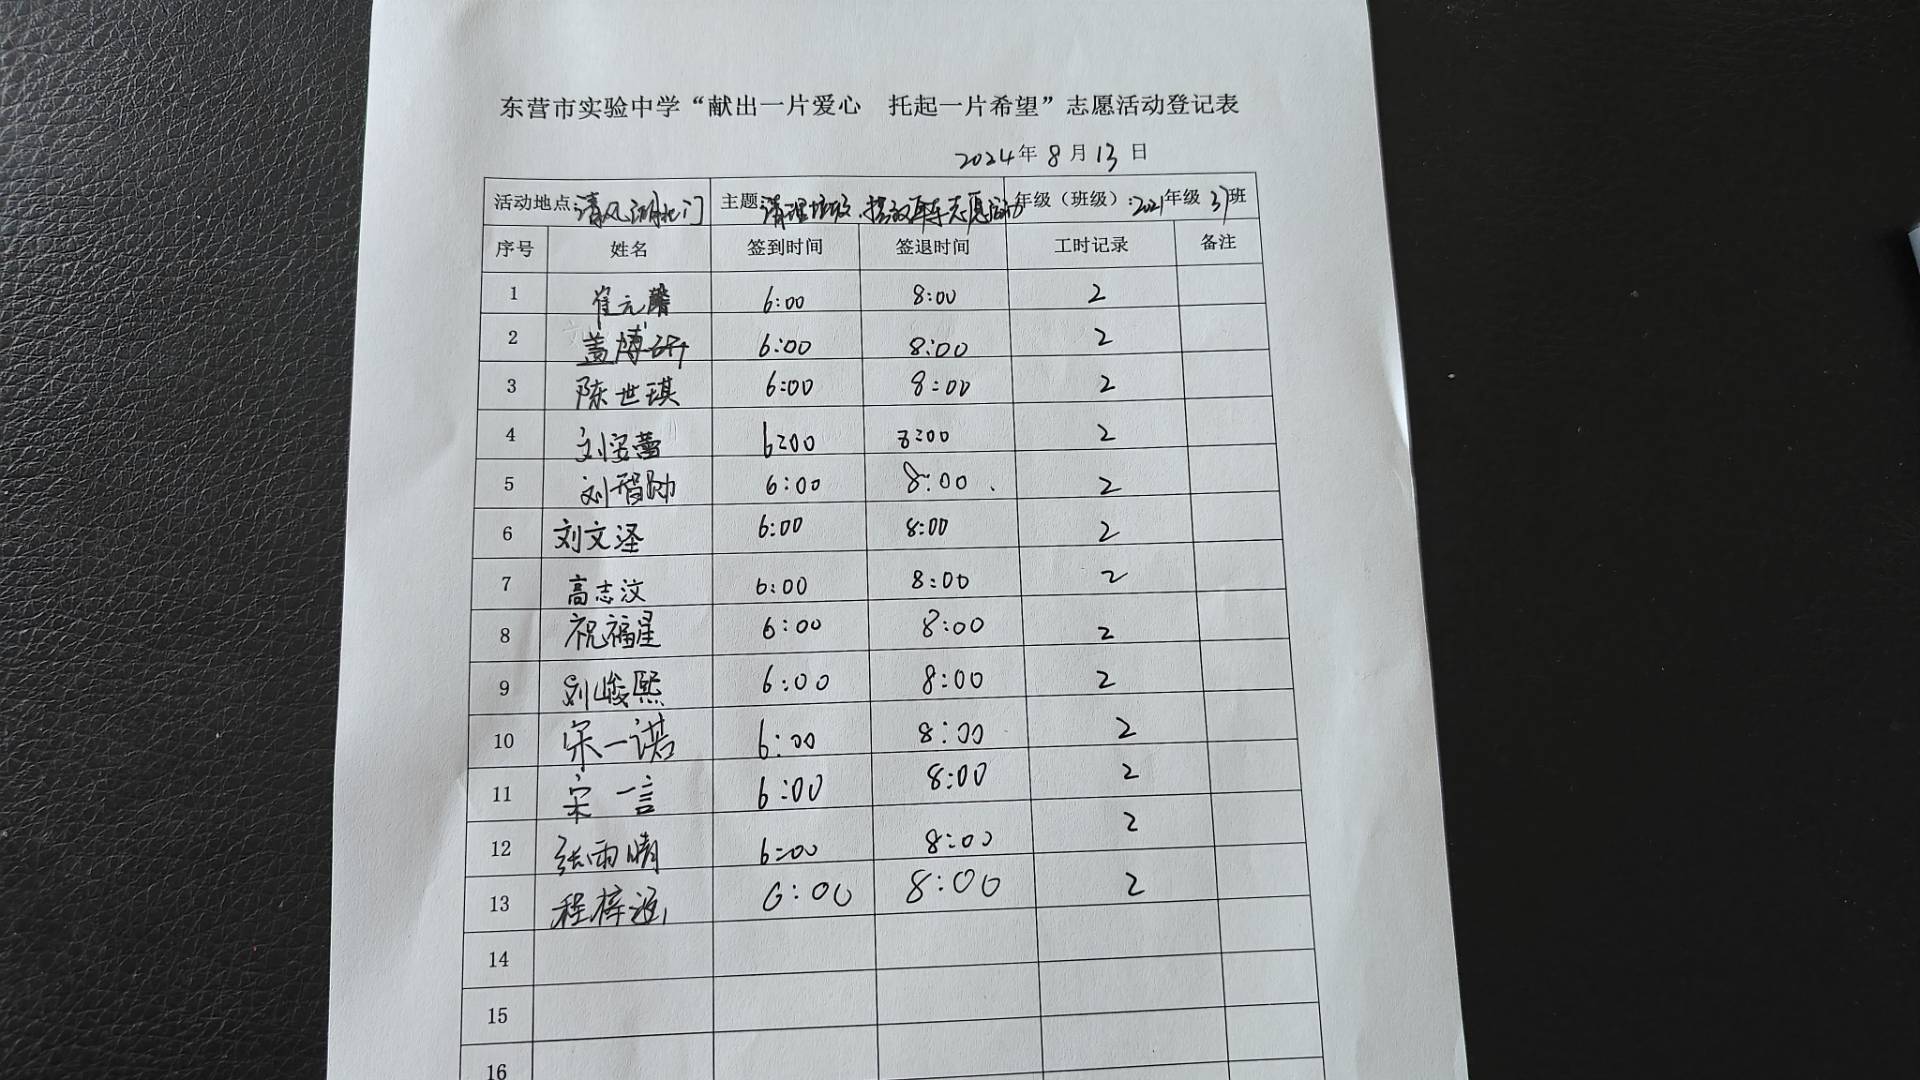 东营市实验中学“献出一片爱心 托起一片希望”志愿活动登记表
2024年8月13日
活动地点:清风湖北门 主题:清理垃圾、摆放单车志愿活动 年级(班级):2021年级37班
序号 姓名 签到时间 签退时间 工时记录 备注
1 崔元馨 6:00 8:00 2
2 盖博 6:00 8:00 2
3 陈世琪 6:00 8:00 2
4 刘安蕾 6:00 8:00 2
5 刘智勋 6:00 8:00 2
6 刘文泽 6:00 8:00 2
7 高志汶 6:00 8:00 2
8 祝福星 6:00 8:00 2
9 刘峻熙 6:00 8:00 2
10 宋一诺 6:00 8:00 2
11 宋一言 6:00 8:00 2
12 张雨晴 6:00 8:00 2
13 程梓涵 6:00 8:00 2
14
15
16